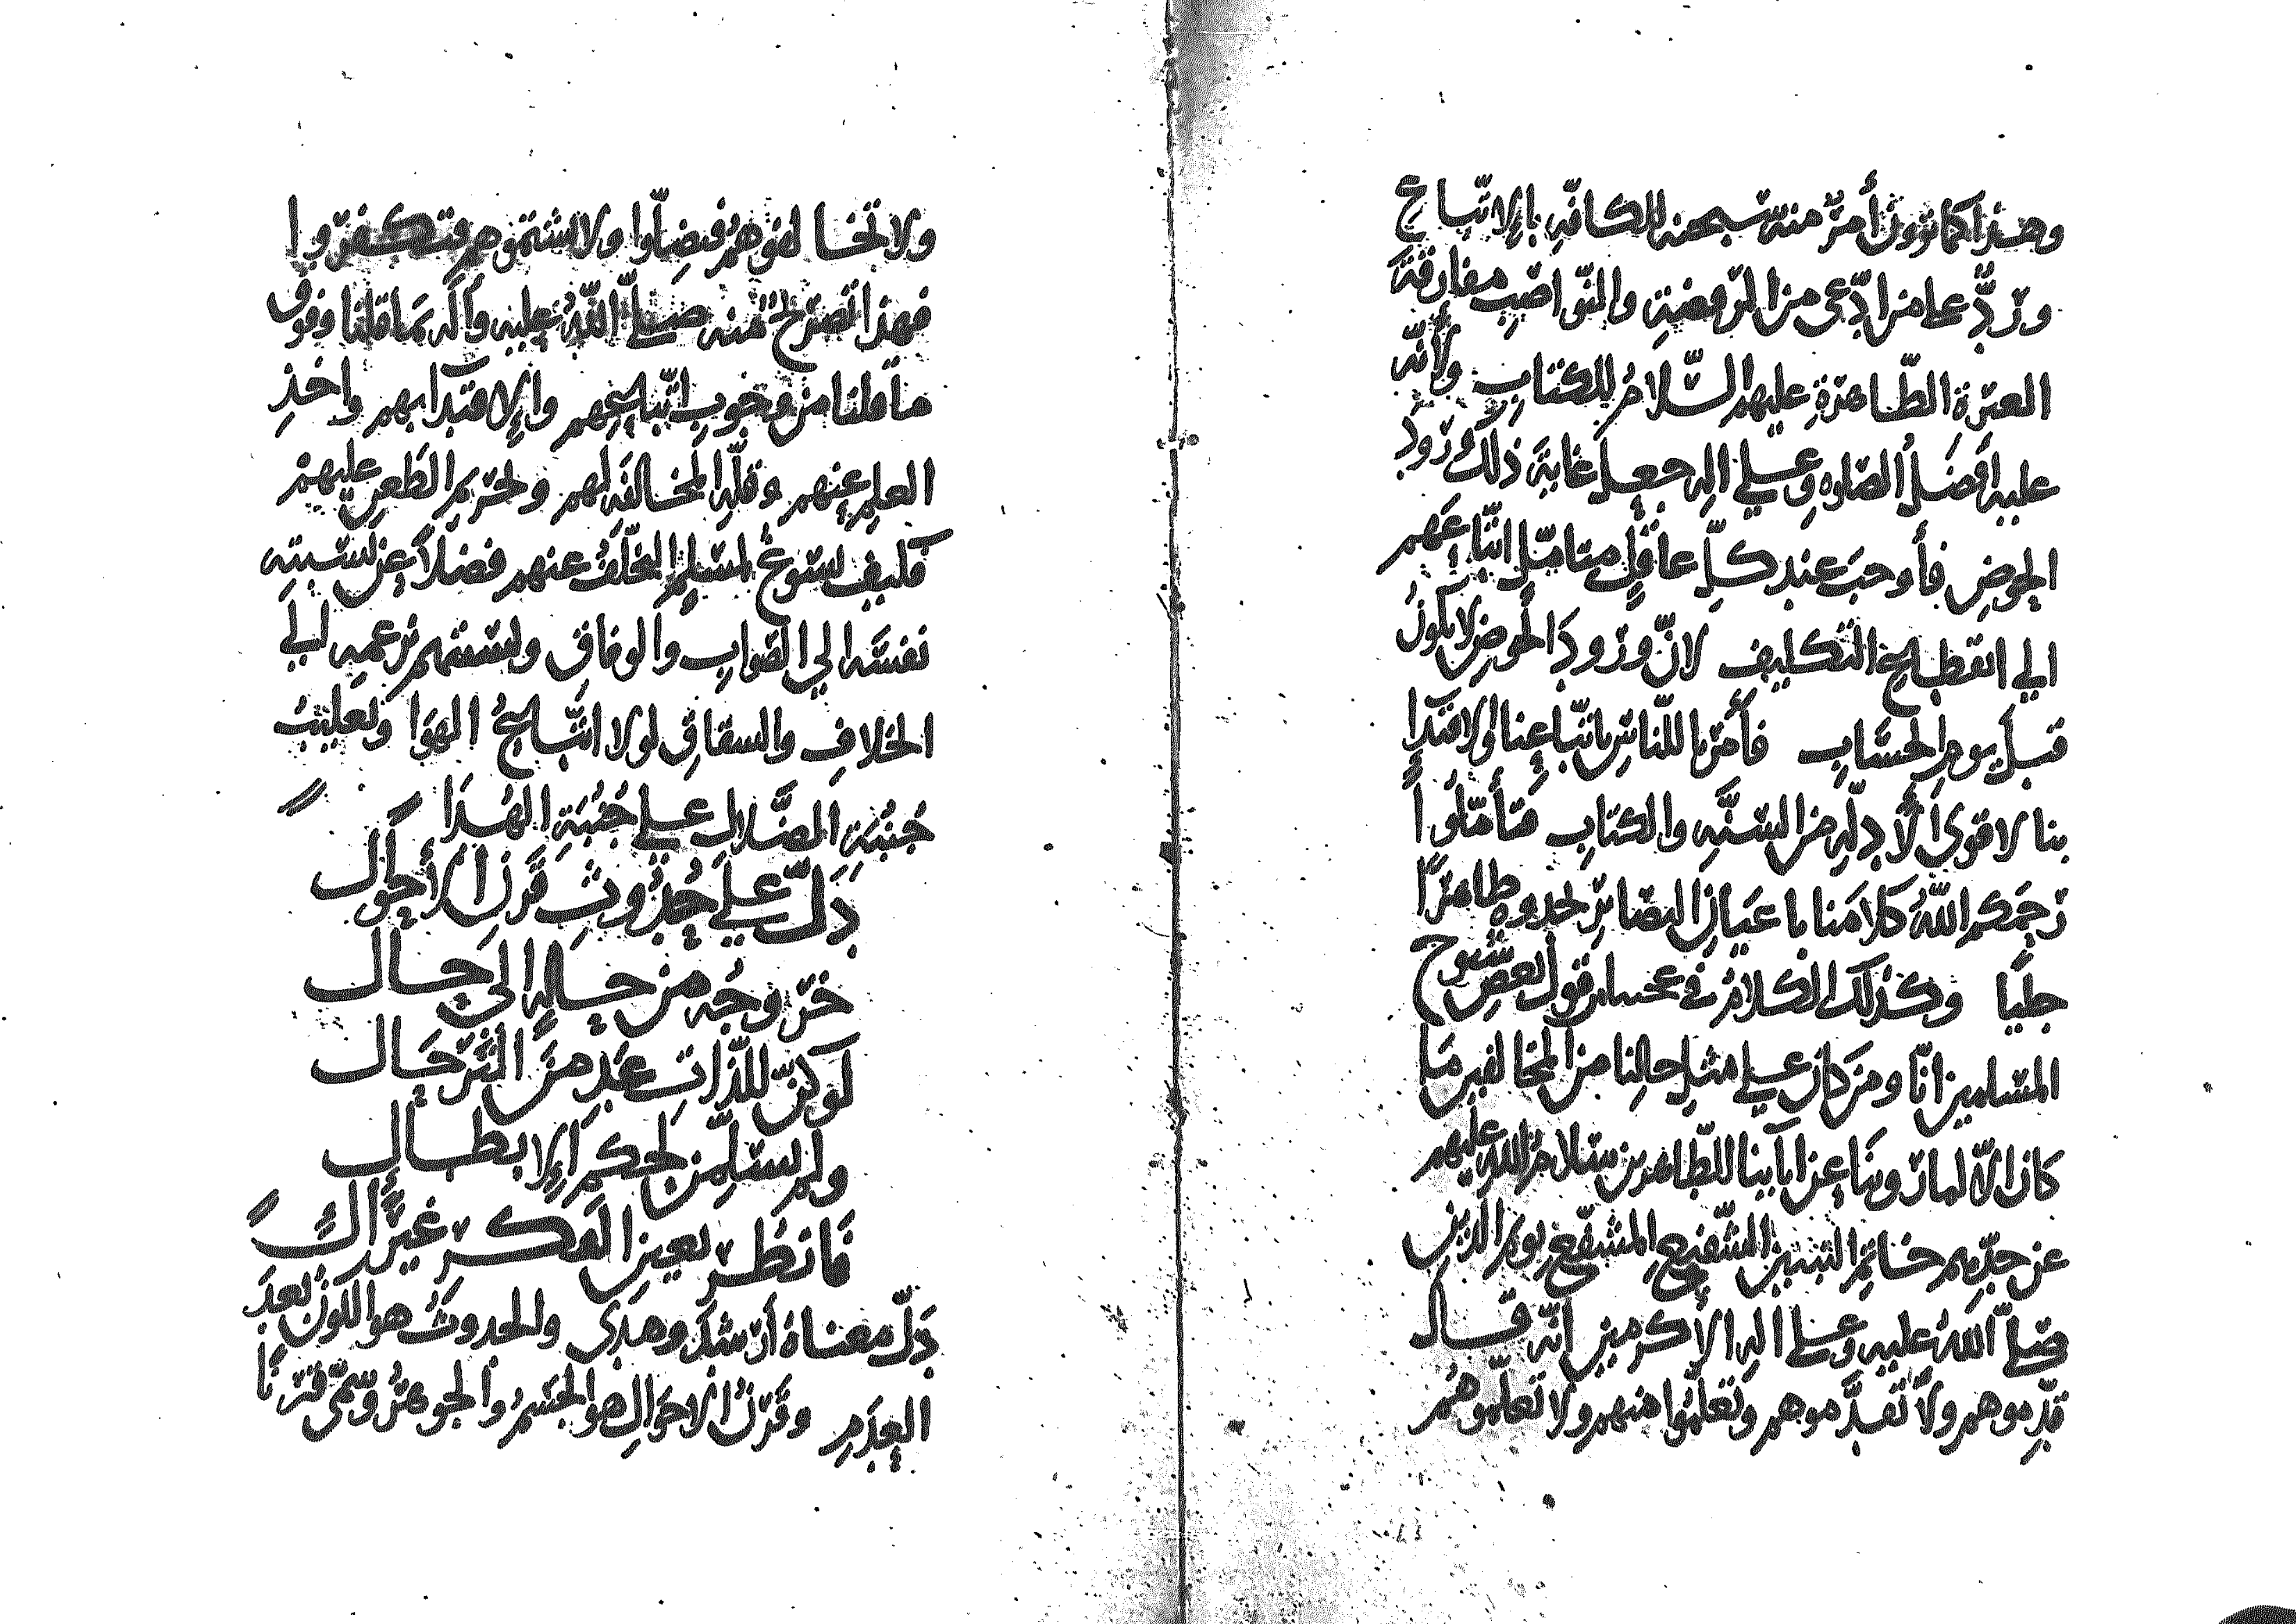 وهذا كما ترون أمر منه سبحنه للكافه بالاتباع
ورد على من ادعى من الرفضة والنواصب مفارقة
العترة الطاهرة عليهم السلام للكتاب ولأنه
عليه أفضل الصلوه وعلى اله جعل غاية ذلك ورود
الحوض فأوجب عند كل عاقل متامل اتباعهم
الى انقطاع التكليف لان ورود الحوض لا يكون
قبل يوم الحساب فأمرنا للناس باتباعنا والاقتدا
بنا لاقوى الأدله من السنه والكتاب فتأملوا
رحمكم الله كلامنا باعيان البصائر تجدوه ظاهرا
جليا وكذلك الكلام في قول بعض شيوخ
المسلمين انا ومن كان على مثل حالنا من المخالفين ما
كان الا لما روينا عن ابآينا الطاهرين سلام الله عليهم
عن جدهم خاتم النبيين الشفيع المشفع يوم الدين
صلى الله عليه وعلى اله الأكرمين انه قال
قدموهم ولا تقدموهم وتعلموا منهم ولا تعلموهم
ولا تخالفوهم فتضلوا ولا تشتموهم فتكفروا
فهذا تصريح منه صلى الله عليه وآله بما قلنا وفوق
ما قلنا من وجوب اتباعهم والاقتدا بهم واخذ
العلم عنهم وقله المخالفه لهم وتحريم الطعن عليهم
فكيف يسوغ لمسلم التخلف عنهم فضلا عن نسبته
نفسه الى الصواب والوفاق ونسبتهم بزعمه الى
الخلاف والشقاق لولا اتباع الهوا وتغليب
جنبة الضلال على جنبة الهدا
دل على حدوث قرن الأحوال
خروجه من حاله الى حال
لو كن للذات عدمن الترحال
ولم يستلمن لحكم الابطال
فانظر بعين الفكر غير آل
دل معناه أرشد وهدى والحدوث هو الكون بعد
العدم وقرن الاحوال هو الجسم والجوهر وسمى قرنا